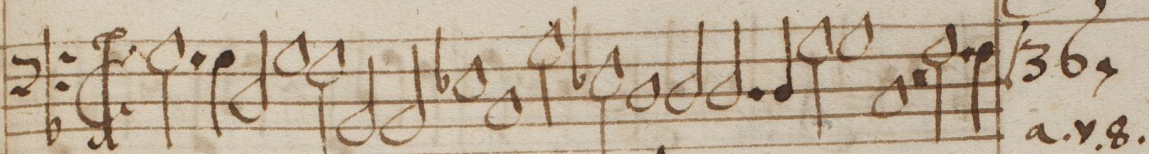 36
a.v.8.